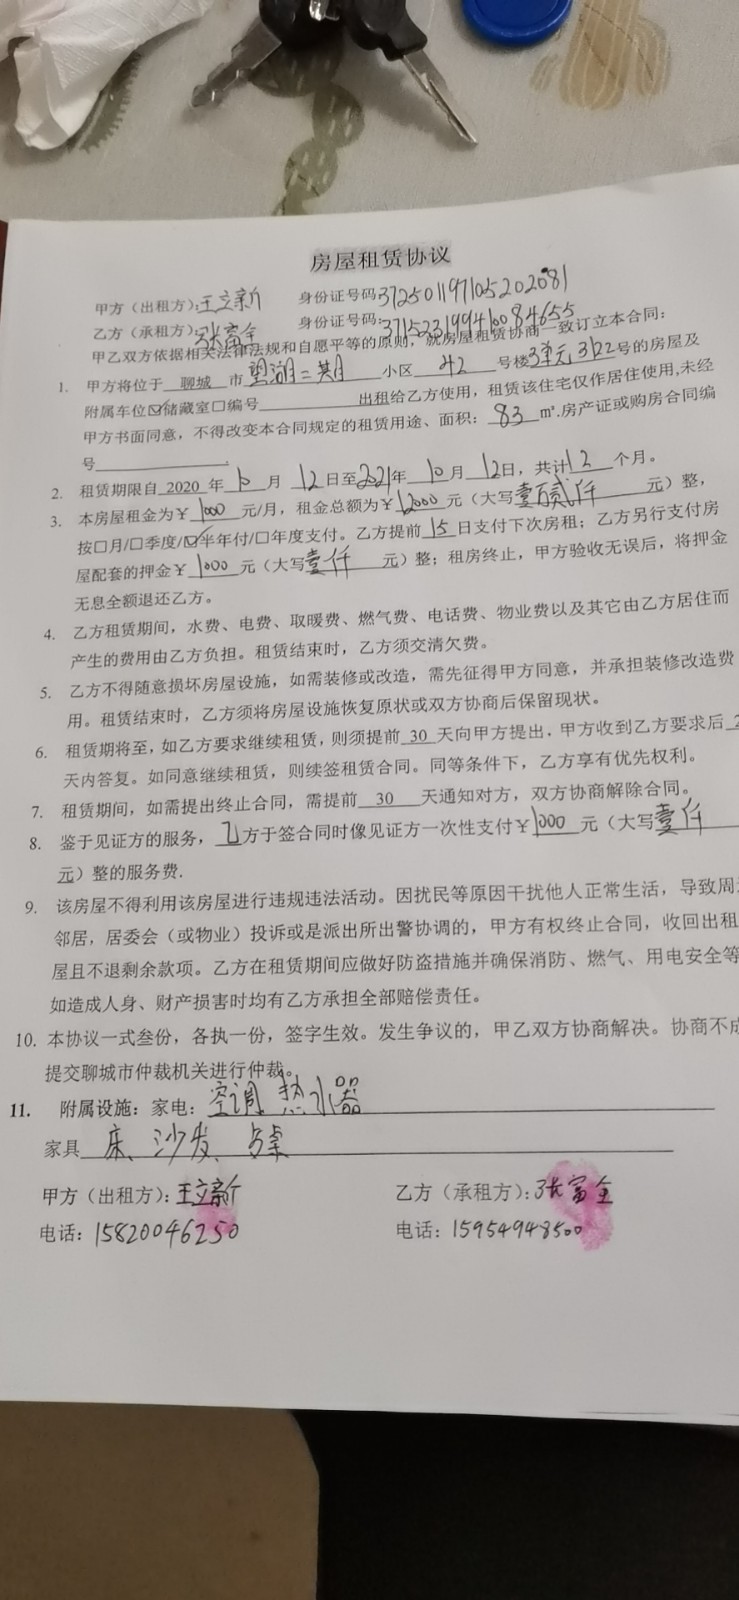 房屋租赁协议
甲方（出租方）：王立新 身份证号码372501197105202081
乙方（承租方）：张富全 身份证号码：371523199410084655
甲乙双方依据相关法律法规和自愿平等的原则，就房屋租赁协商一致订立本合同：
1. 甲方将位于 聊城 市望湖二期小区 42 号楼3单元3122号的房屋及
附属车位☑储藏室□编号 出租给乙方使用，租赁该住宅仅作居住使用,未经
甲方书面同意，不得改变本合同规定的租赁用途、面积： 83 ㎡.房产证或购房合同编
号 .
2. 租赁期限自 2020 年 10 月 12 日至2021年 10 月 12日，共计12 个月。
3. 本房屋租金为￥1000 元/月，租金总额为￥12000 元（大写壹万贰仟 元）整，
按□月/□季度/☑半年付/□年度支付。乙方提前 15 日支付下次房租；乙方另行支付房
屋配套的押金￥ 1000 元（大写壹仟 元）整；租房终止，甲方验收无误后，将押金
无息全额退还乙方。
4. 乙方租赁期间，水费、电费、取暖费、燃气费、电话费、物业费以及其它由乙方居住而
产生的费用由乙方负担。租赁结束时，乙方须交清欠费。
5. 乙方不得随意损坏房屋设施，如需装修或改造，需先征得甲方同意，并承担装修改造费
用。租赁结束时，乙方须将房屋设施恢复原状或双方协商后保留现状。
6. 租赁期将至，如乙方要求继续租赁，则须提前 30 天向甲方提出，甲方收到乙方要求后 2
天内答复。如同意继续租赁，则续签租赁合同。同等条件下，乙方享有优先权利。
7. 租赁期间，如需提出终止合同，需提前 30 天通知对方，双方协商解除合同。
8. 鉴于见证方的服务， 乙方于签合同时像见证方一次性支付￥1000 元（大写壹仟
元）整的服务费.
9. 该房屋不得利用该房屋进行违规违法活动。因扰民等原因干扰他人正常生活，导致周
邻居，居委会（或物业）投诉或是派出所出警协调的，甲方有权终止合同，收回出租
屋且不退剩余款项。乙方在租赁期间应做好防盗措施并确保消防、燃气、用电安全等
如造成人身、财产损害时均有乙方承担全部赔偿责任。
10. 本协议一式叁份，各执一份，签字生效。发生争议的，甲乙双方协商解决。协商不成
提交聊城市仲裁机关进行仲裁。
11. 附属设施：家电：空调、热水器
家具 床、沙发、
甲方（出租方）：王立新 乙方（承租方）：张富全
电话：15820046250 电话：15954948500